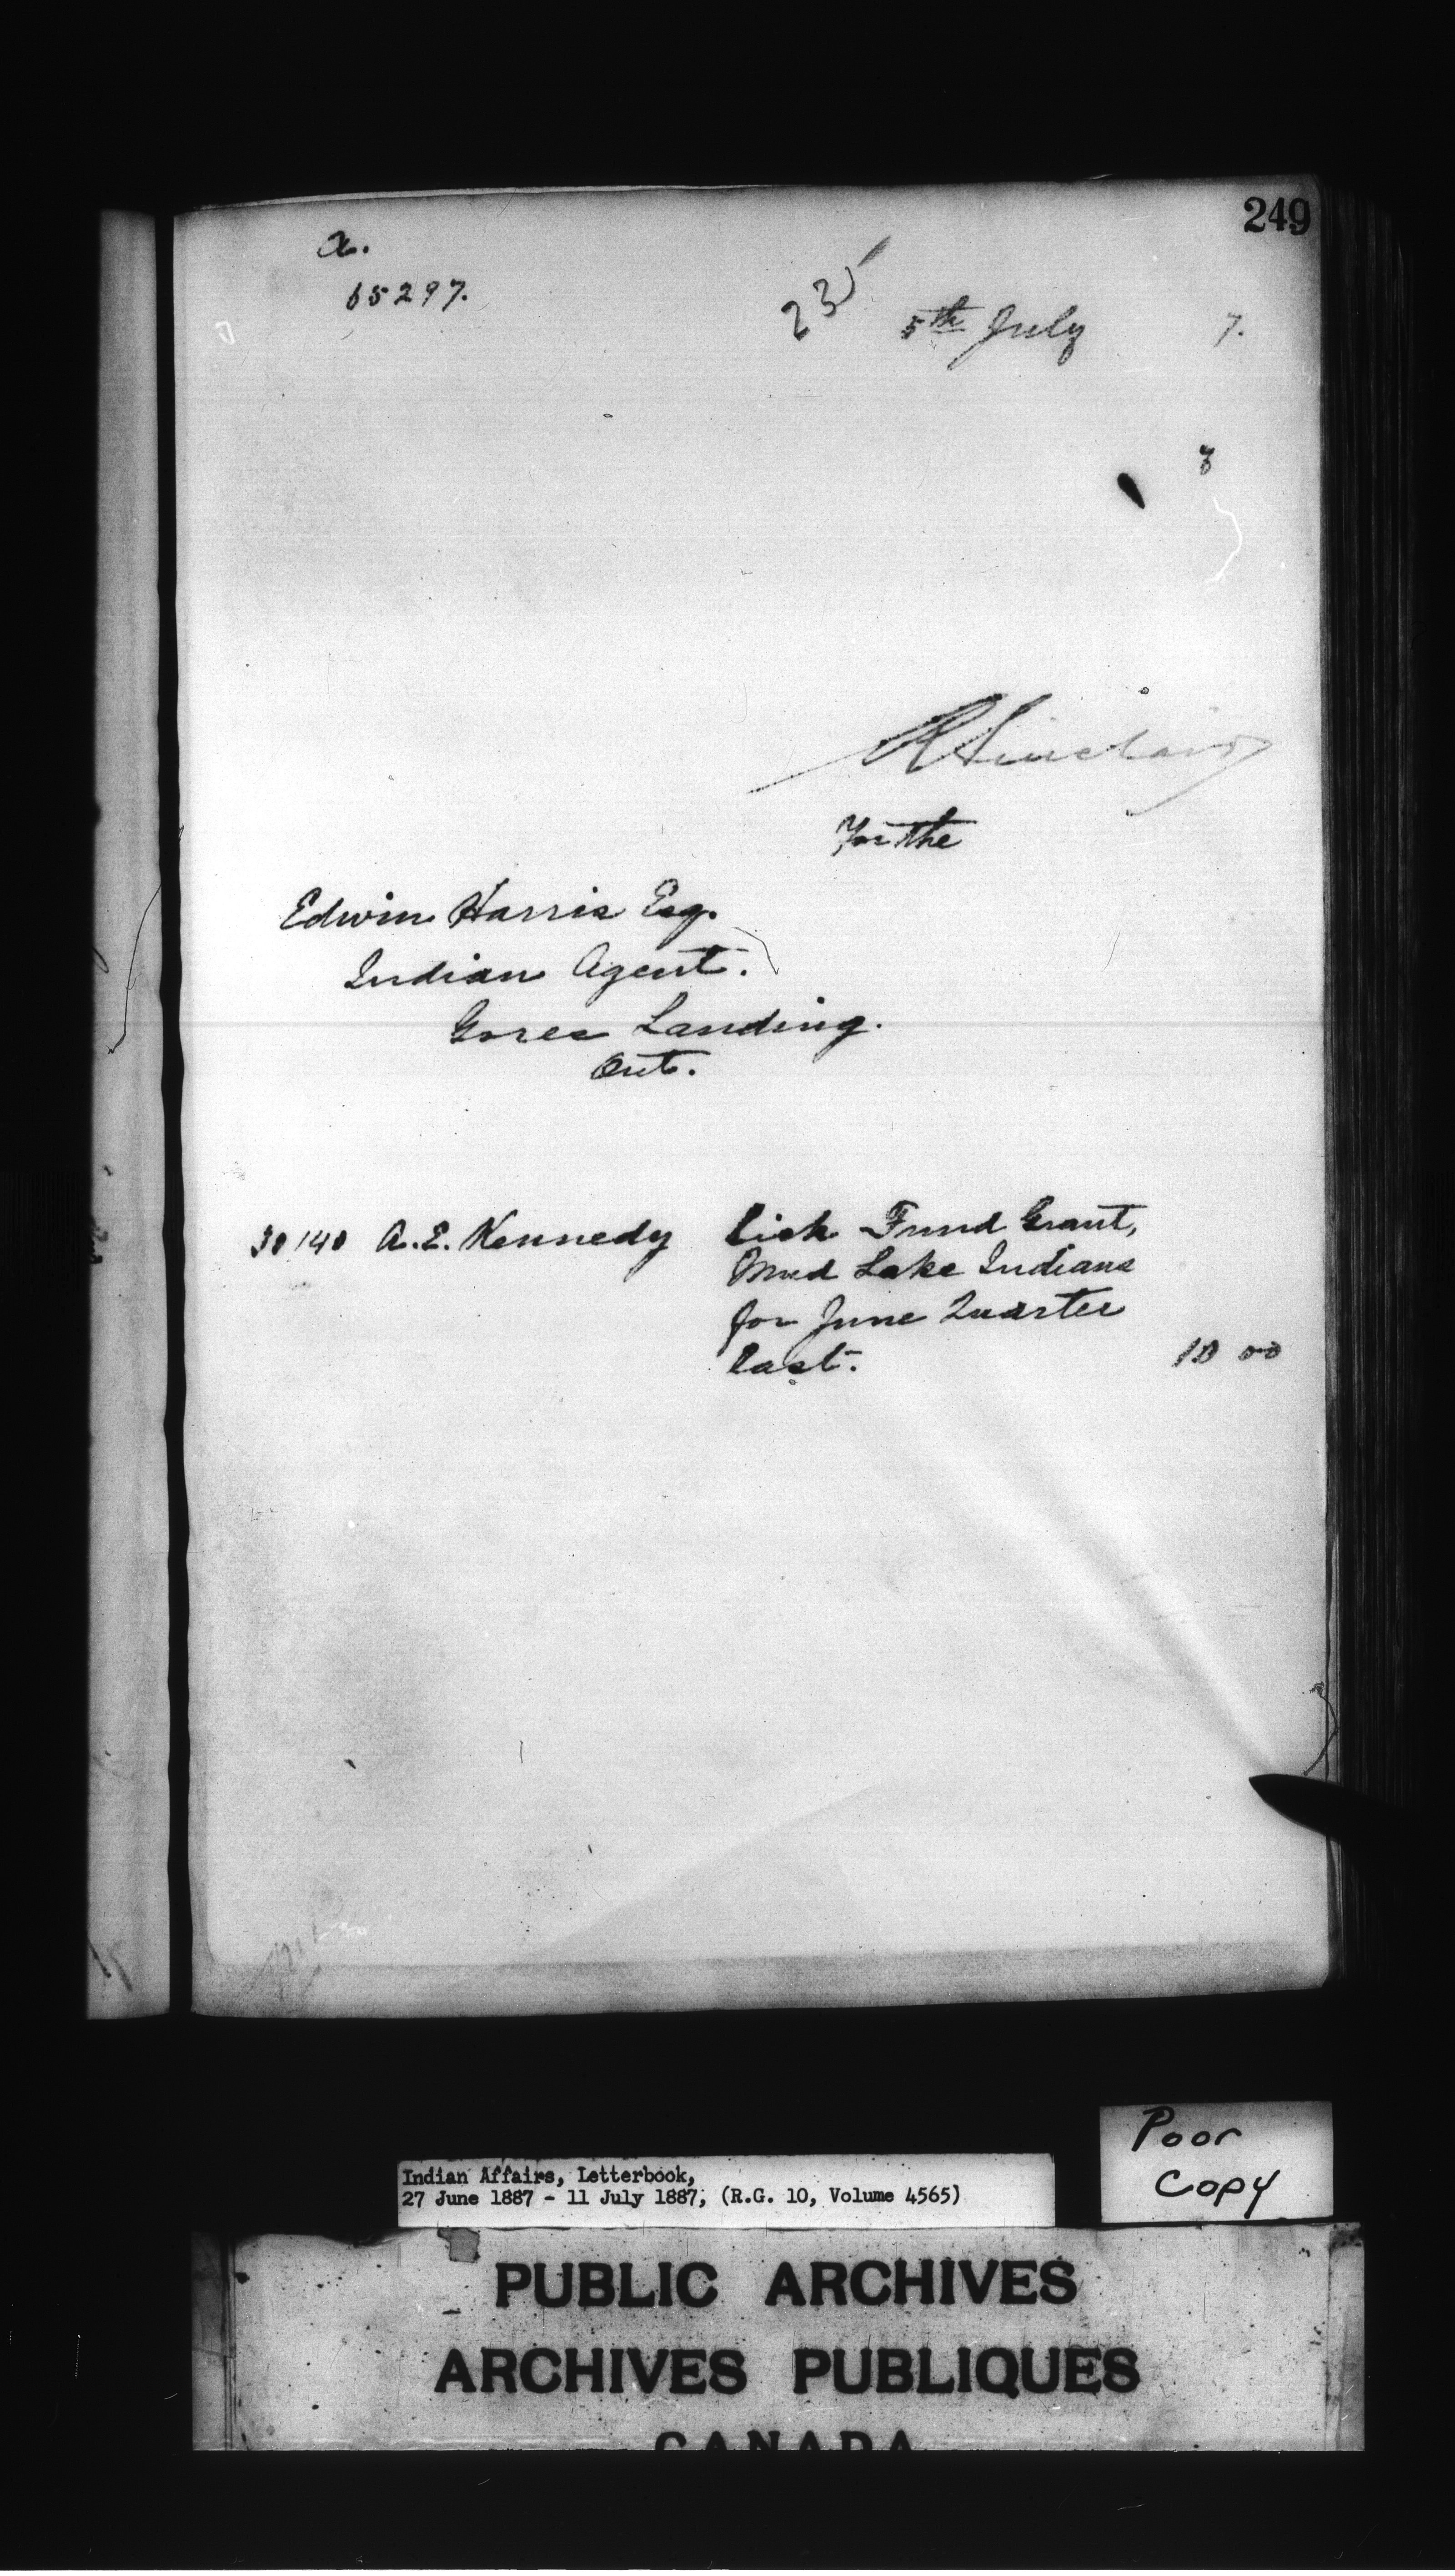 249
a.
65297.
235
5th July 7.
R Sinclair
For the
Edwin Harris Esq.
Indian Agent.
Gores Landing.
Ont.
30140 A. E. Kennedy Sick Fund Grant,
Mud Lake Indians
for June Quarter
last. 10 00
Poor
Copy
Indian Affairs, Letterbook,
27 June 1887 - 11 July 1887, (R.G. 10, Volume 4565)
PUBLIC ARCHIVES
ARCHIVES PUBLIQUES
CANADA